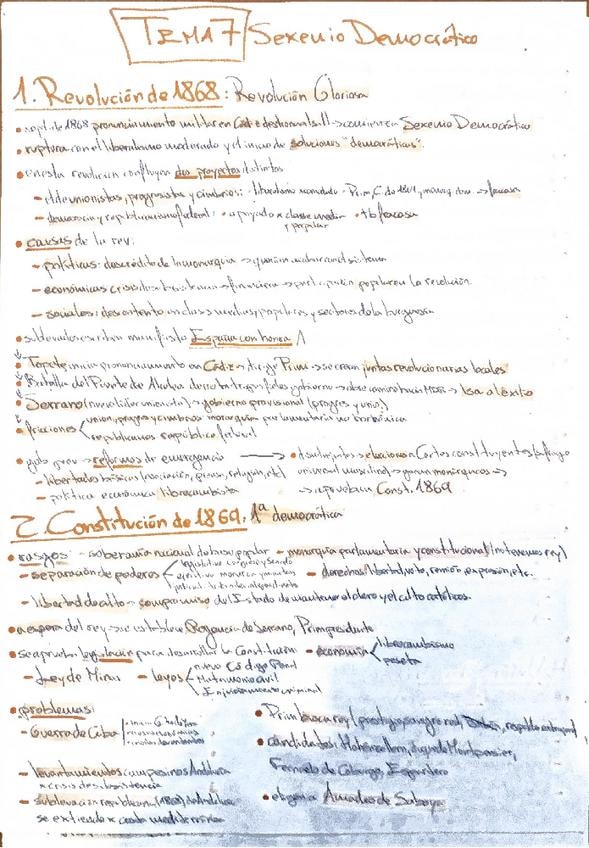 TEMA 7 Sexenio Democrático
1. Revolución de 1868: Revolución Gloriosa
• sept. de 1868 pronunciamiento militar en Cádiz destrona Is. II → comienza Sexenio Democrático
• ruptura con el liberalismo moderado y el inicio de soluciones "democráticas".
• en esta revolución confluyen dos proyectos distintos
- el de unionistas, progresistas y cimbrios: liberalismo → fracasa
- democracia y republicanismo federal: • apoyado x clase media • tb fracasa
y popular
• causas de la rev:
- políticas: descrédito de la monarquía → sistema
- económicas: crisis → financiera → participación popular en la revolución
- sociales: descontento en clases medias, populares y sectores de la burguesía
• sublevados escriben manifiesto España con honra
• Topete inicia pronunciamiento en Cádiz → Prim → se crean juntas revolucionarias locales
• Batalla del Puente de Alcolea derrota tropas fieles gobierno → Isa al exilio
• Serrano → gobierno provisional (progres y unio.)
• fricciones union, progres y cimbrios: monarquía parlamentaria no borbónica
republicanos: república federal
• gob prov → reformas de emergencia → • elecciones a Cortes constituyentes (sufragio
- libertades básicas (asociación, prensa, religión, etc) universal masculino) → ganan monárquicos →
- política económica librecambista → aprueban Const. 1869
2. Constitución de 1869: 1ª democrática
• rasgos: - soberanía nacional de base popular - monarquía parlamentaria y constitucional (no tenemos rey)
- separación de poderes legislativo: congreso y senado
ejecutivo: monarca y ministros - derechos: libertad, voto, reunión, expresión, etc.
judicial: tribunales
- libertad de culto → compromiso del Estado de mantener al clero y el culto católicos.
• a espera del rey → se establece Regencia de Serrano, Prim presidente
• se aprueban leyes para desarrollar la Constitución - economía librecambismo
peseta
- Ley de Minas - leyes nuevo Código Penal
Matrimonio civil
Enjuiciamiento criminal
• problemas:
- Guerra de Cuba
- levantamientos campesinos Andalucía
x crisis de subsistencia
- sublevación republicana (1869)
se extiende x costa mediterránea
• Prim busca rey (prestigio, sangre real,
• candidatos: Hohenzollern, duque de Montpensier,
Fernando de Coburgo, Espartero
• eligen a Amadeo de Saboya